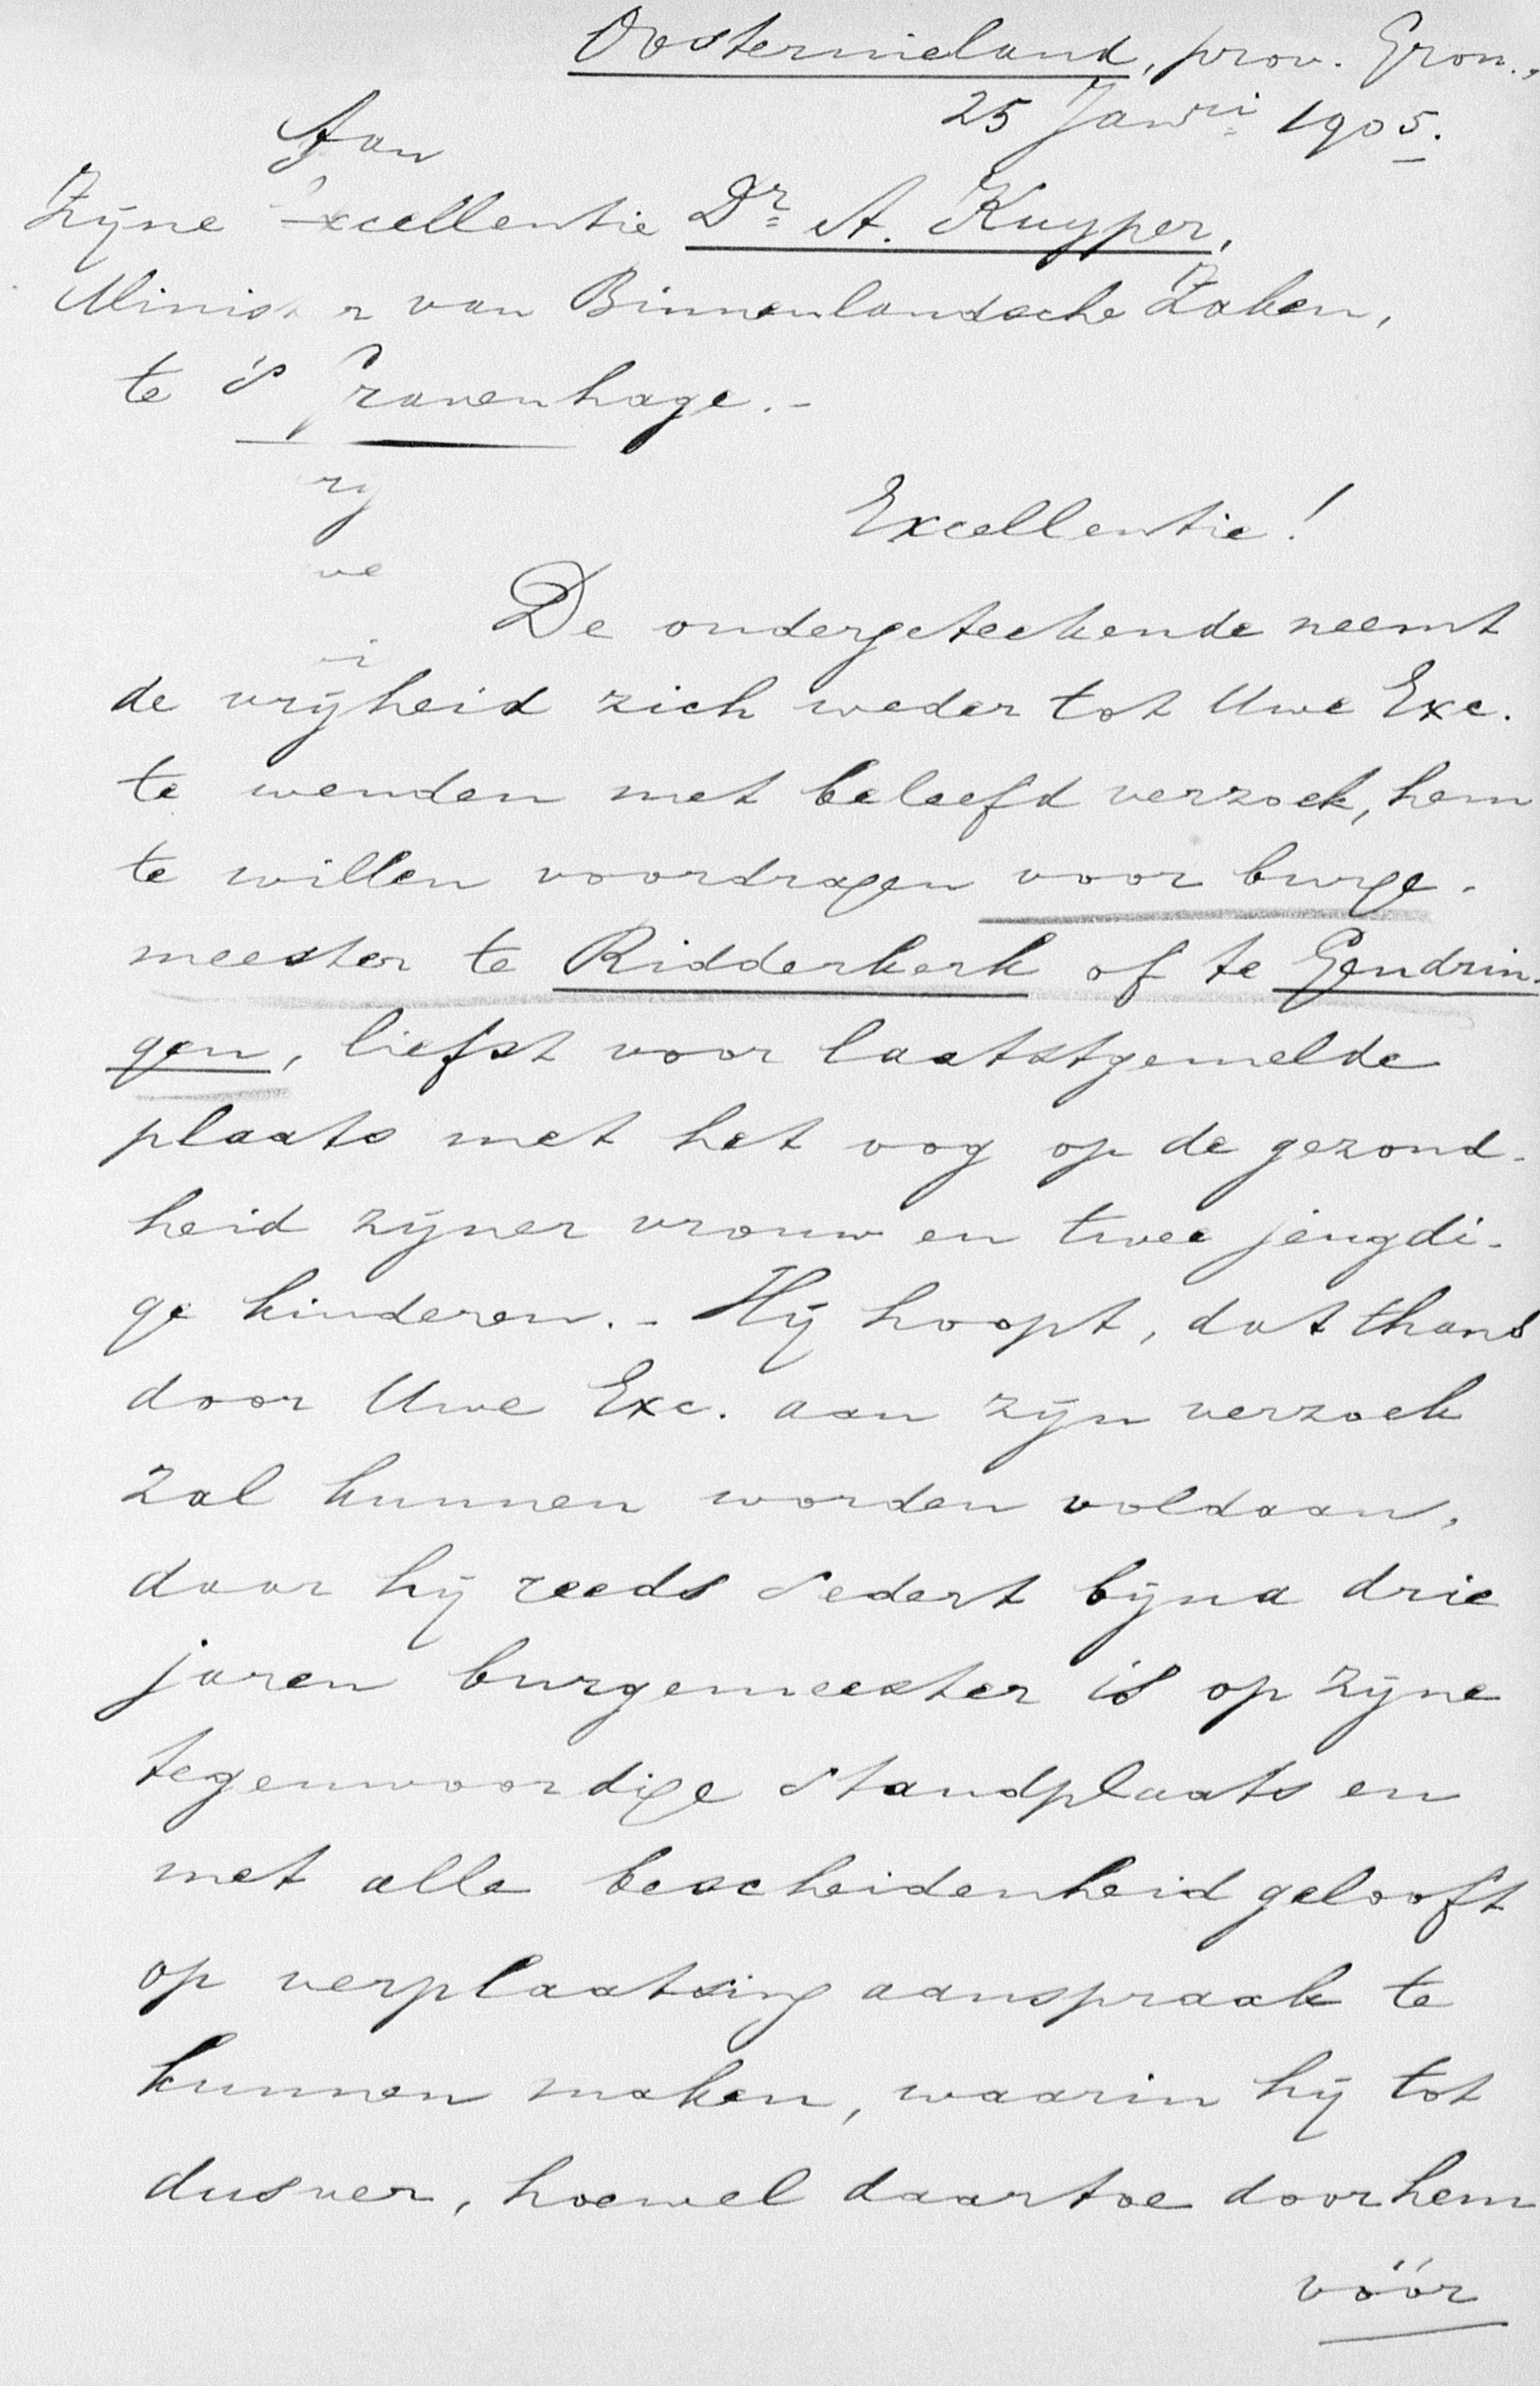 Oosternieland, prov. Gron.,
25 Janri 1905.
Aan
Zijne Excellentie Dr A. Kuyper,
Minister van Binnenlandsche Zaken,
te 's Gravenhage.-
rij
ve
Excellentie!
De ondergeteekende neemt
de vrijheid zich weder tot Uwe Exc.
te wenden met beleefd verzoek, hem
te willen voordragen voor burge-
meester te Ridderkerk of te Gendrin-
gen, liefst voor laatstgemelde
plaats met het oog op de gezond-
heid zijner vrouw en twee jeugdi-
ge kinderen. - Hij hoopt, dat thans
door Uwe Exc. aan zijn verzoek
zal kunnen worden voldaan,
daar hij reeds sedert bijna drie
jaren burgemeester is op zijne
tegenwoordige standplaats en
met alle bescheidenheid gelooft
op verplaatsing aanspraak te
kunnen maken, waarin hij tot
dusver, hoewel daartoe door hem
vóór